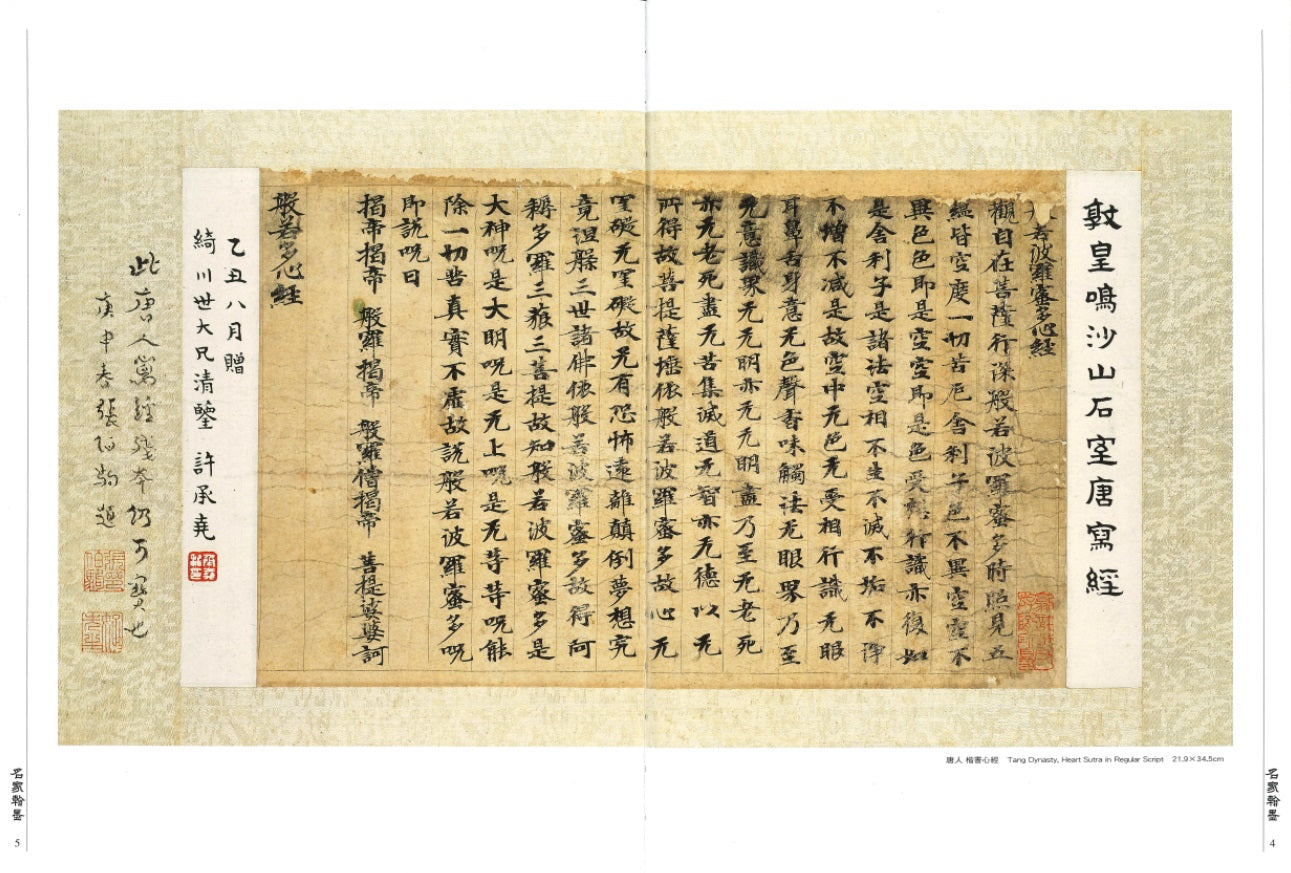 敦皇鳴沙山石室唐寫經
若波羅蜜多心經
觀自在菩薩行深般若波羅蜜多時照見五
蘊皆空度一切苦厄舍利子色不異空空不
異色色即是空空即是色受想行識亦復如
是舍利子是諸法空相不生不滅不垢不淨
不增不减是故空中无色无受相行識无眼
耳鼻舌身意无色聲香味觸法无眼界乃至
无意識界无无明亦无无明盡乃至无老死
亦无老死盡无苦集滅道无智亦无德以无
所得故菩提薩埵依般若波羅蜜多故心无
罣礙无罣礙故无有恐怖遠離顛倒夢想究
竟涅槃三世諸佛依般若波羅蜜多故得阿
耨多羅三藐三菩提故知般若波羅蜜多是
大神呪是大明呪是无上呪是无等等呪能
除一切苦真實不虛故說般若波羅蜜多呪
即說呪曰
揭帝揭帝 般羅揭帝 般羅僧揭帝 菩提娑婆訶
般若多心經
乙丑八月贈
綺川世大兄清鑒 許承堯
此唐人寫經殘本仍可寶也
庚申春張伯駒題
唐人 楷書心經 Tang Dynasty, Heart Sutra in Regular Script 21.9×34.5cm
名家翰墨
4
名家翰墨
5